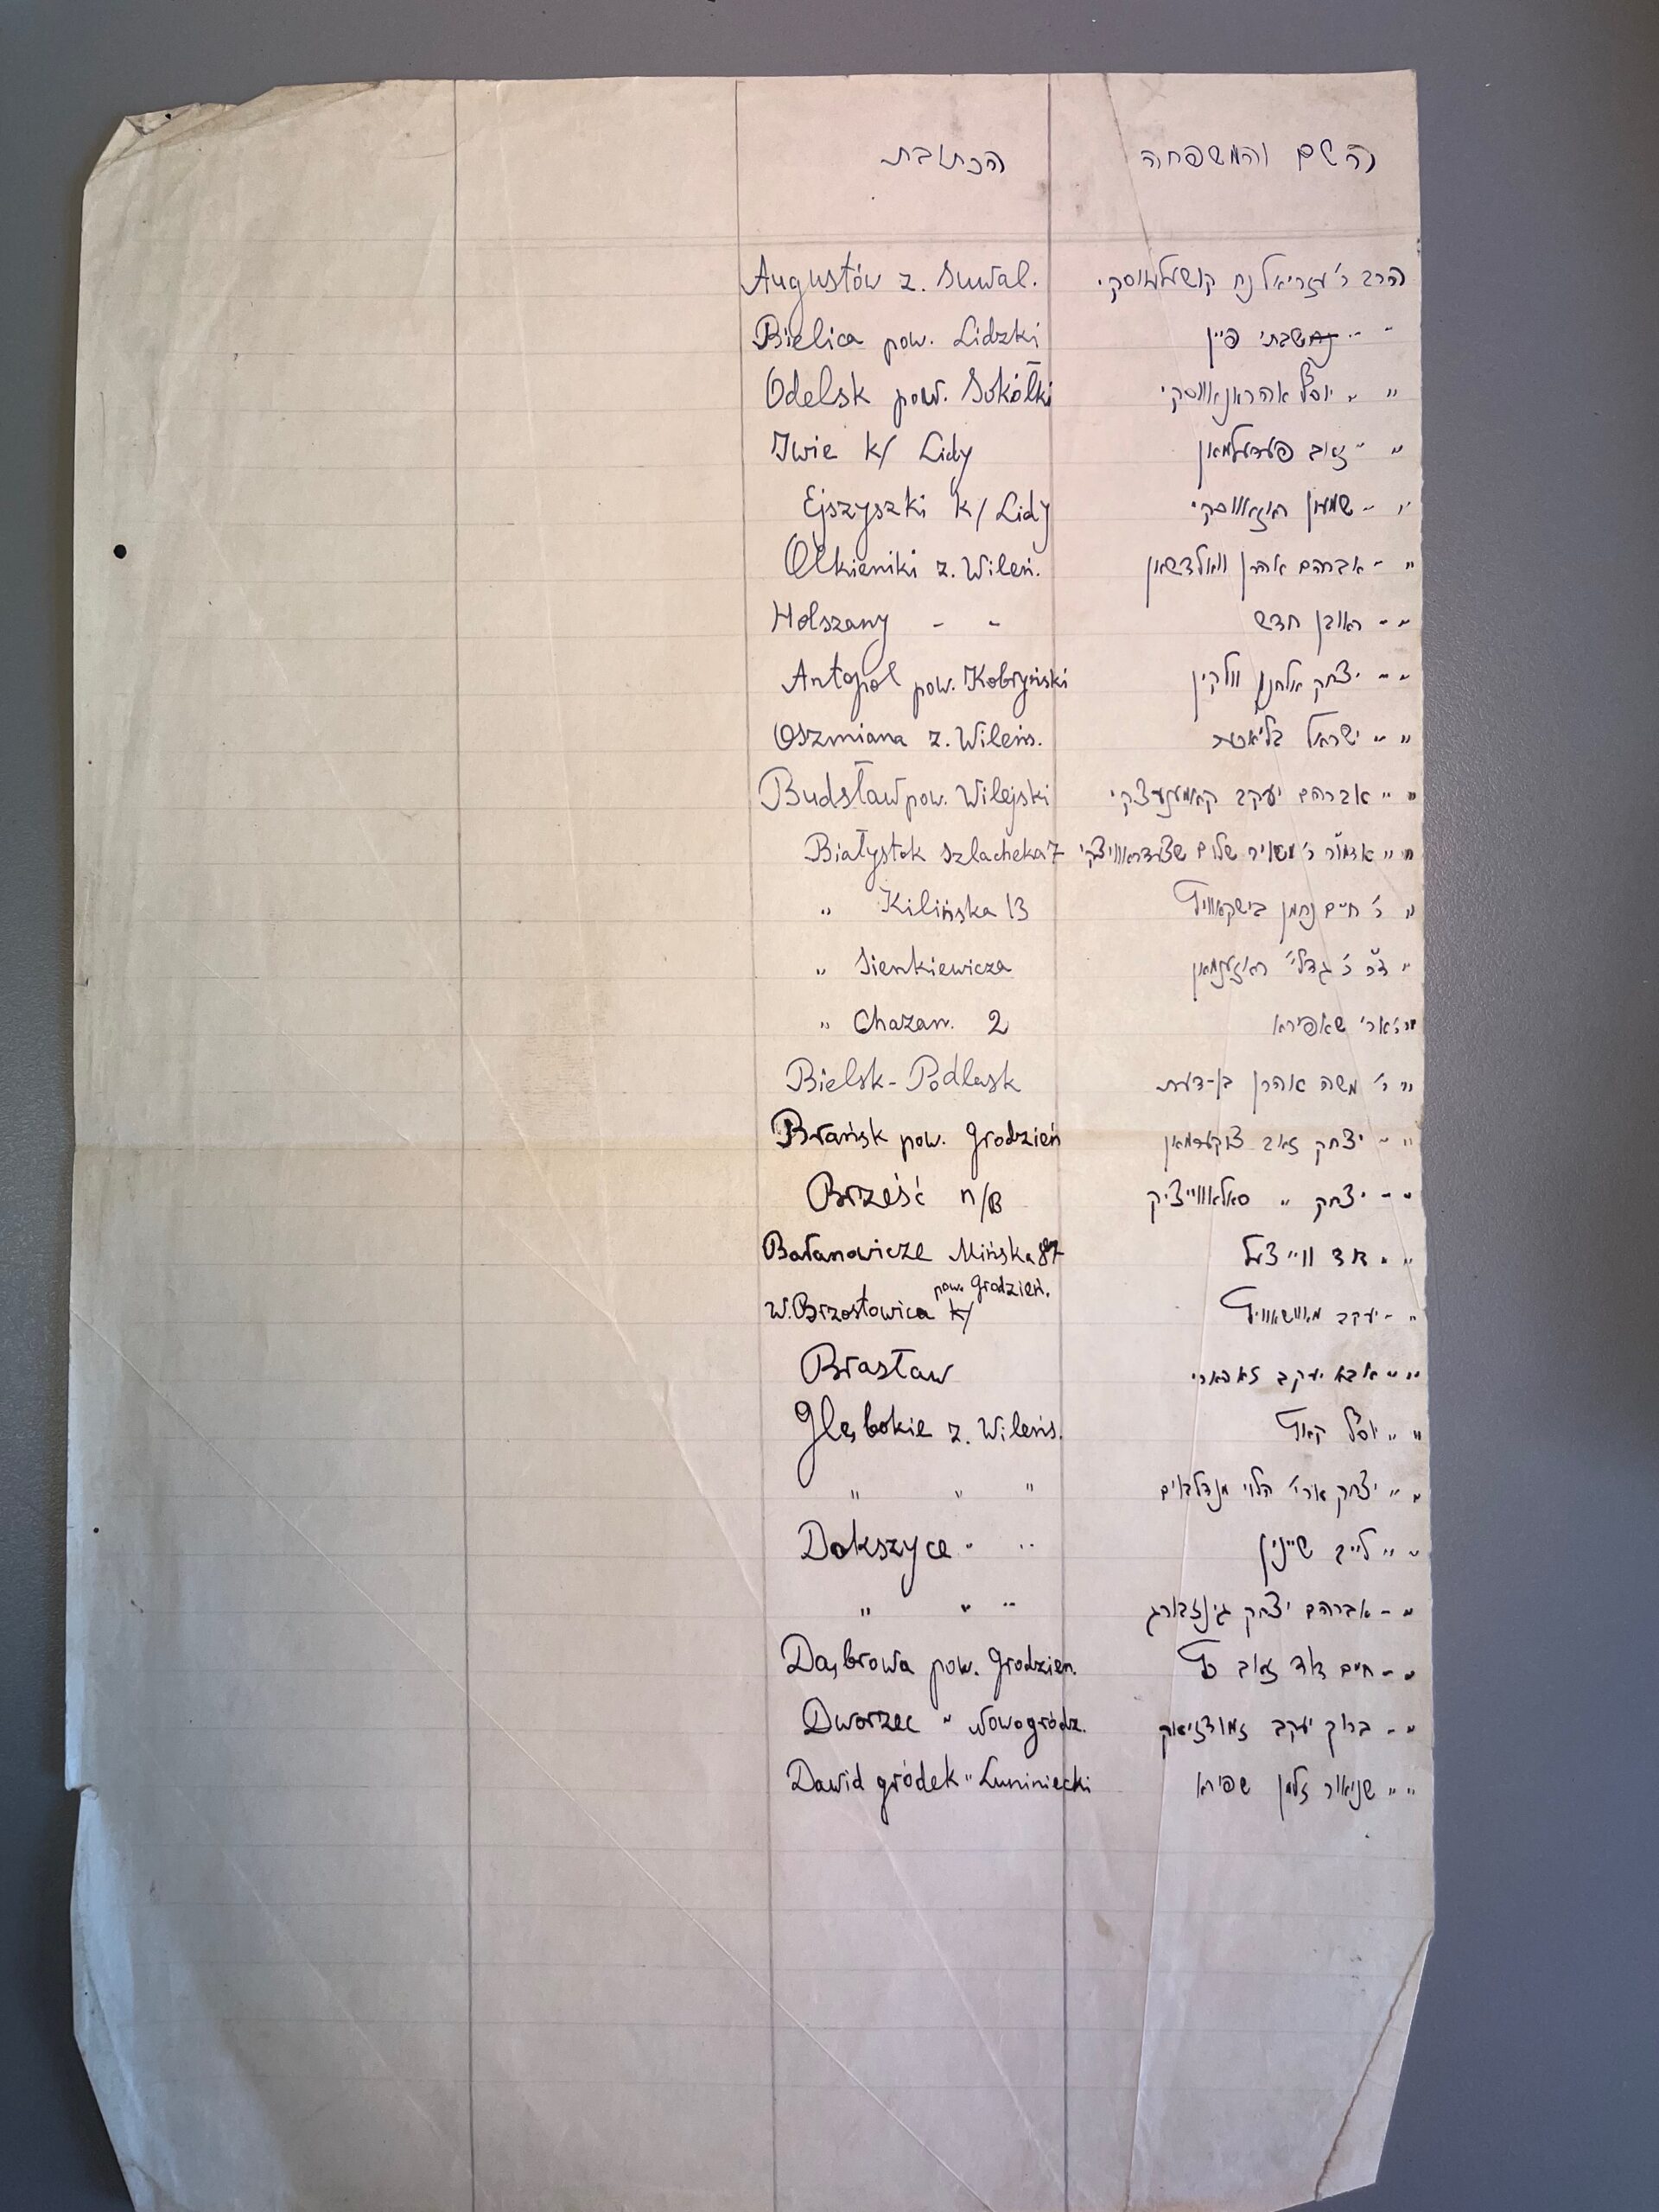 השם והמשפחה הכתובת
הרב ר' עזריאל נח קושעלעווסקי. Augustów z. Suwal.
" " שבתי פיין Bielica pow. Lidzki
" " יוסף אהראנאווסקי Odelsk pow. Sokółki
" " זאב פערעלמאן Iwie k/ Lidy
" " שמעון ראזאווסקי Ejszyszki k/ Lidy
" " אברהם אהרן וואלדשאן Olkieniki z. Wileń.
" " ראובן חדש Holszany " "
" " יצחק אלחנן וולקין Antopol pow. Kobryński
" " ישראל Oszmiana z. Wileńs.
" " אברהם יעקב קאמענעצקי Budsław pow. Wilejski
" " אדמו"ר ר' מאיר שלום Białystok Szlachecka 7
" ר' חיים נחמן בישקאוויץ " Kilińska 13
" ד"ר ר' גדלי' ראזענמאן " Sienkiewicza
שאפירא " Chazan. 2
" ר' משה אהרן בן-דעת Bielsk-Podlask
" " יצחק זאב צוקערמאן Brańsk pow. Grodzień
" " יצחק " סאלאווייציק Brześć n/B
" " דוד ווייצעל Baranowicze Mińska 87
" " יעקב W. Brzostowica k/ pow. Grodzień.
" " אבא יעקב Brasław
" " יוסף קאץ Głębokie z. Wileńs.
" " יצחק ארי' הלוי מנדלבוים " " "
" " לייב שיינין Dokszyce " "
" " אברהם יצחק גינזבורג " " "
" " חיים דוד זאב כץ Dąbrowa pow. Grodzien.
" " ברוך יעקב Dworzec " Nowogródz.
" " שניאור זלמן שפירא Dawid gródek " Łuniniecki